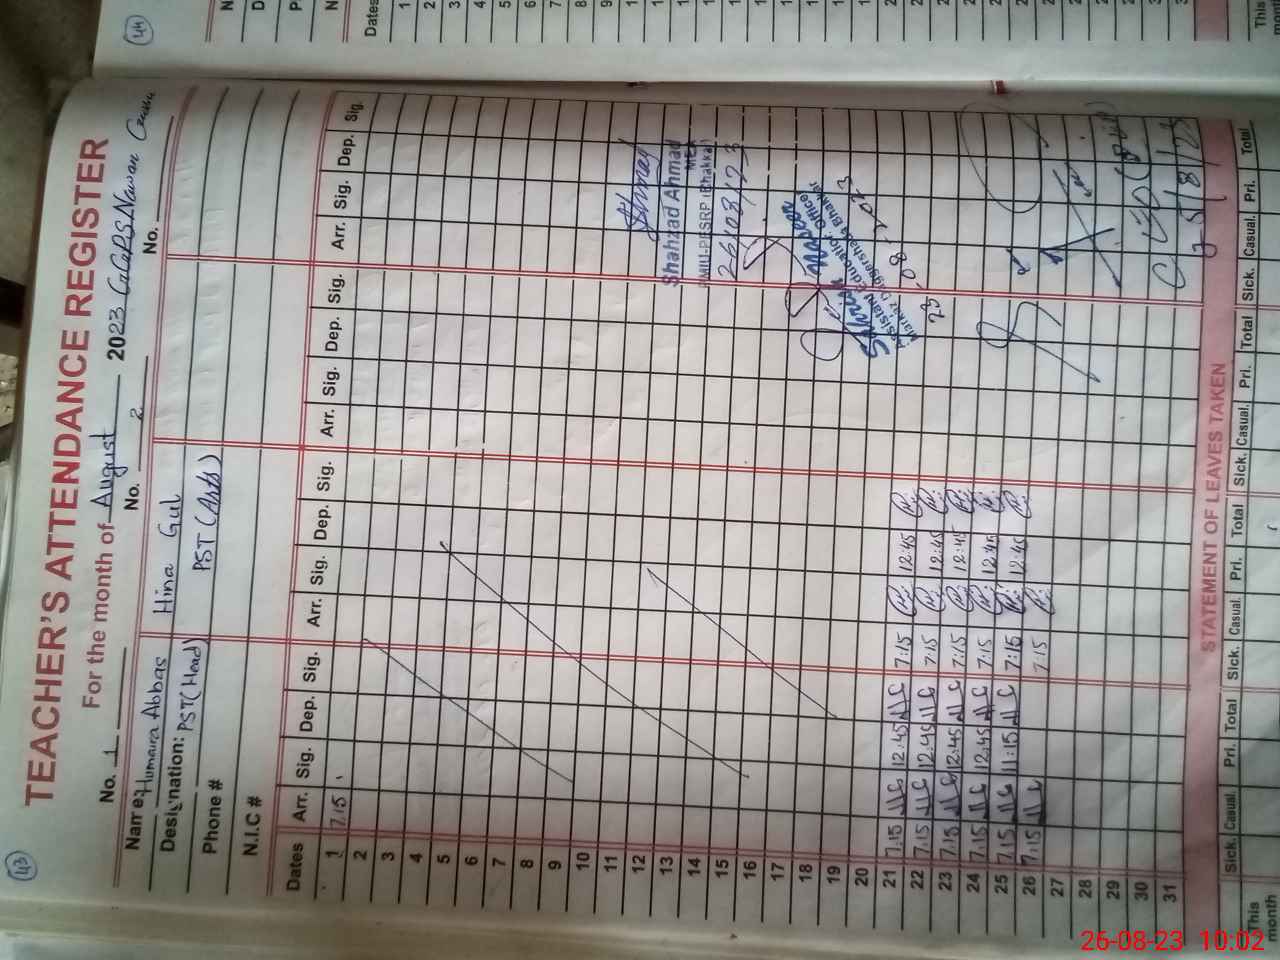 43
TEACHER'S ATTENDANCE REGISTER
For the month of August 2023 GGPS Nawan
No. 1 No. 2 No.
Name: Humaira Abbas Hina Gul
Designation: PST (Head) PST (Arts)
Phone #
N.I.C #
Dates Arr. Sig. Dep. Sig. Arr. Sig. Dep. Sig. Arr. Sig. Dep. Sig. Arr. Sig. Dep. Sig.
1 7.15
2
3
4
5
6
7
8
9
10
11
12
13
14
15
16
17
18
19
20
21 7.15 12:45 7:15 12:45
22 7.15 12:45 7:15 12:45
23 7.15 12:45 7:15 12:45
24 7.15 12:45 7:15 12:45
25 7.15 11:15 7:15 12:45
26 7:15 7:15
27
28
29
30
31
Shahzad Ahmad
MEA
PMIU-PESRP (Bhakkar)
26/08/23
Assistant Education Officer
Markaz Daggershada Bhakkar
23-08-2023
STATEMENT OF LEAVES TAKEN
Sick. Casual. Pri. Total Sick. Casual. Pri. Total Sick. Casual. Pri. Total Sick. Casual. Pri. Total
This month
44
Dates
1
2
3
4
5
6
7
8
9
This
26-08-23 10:02